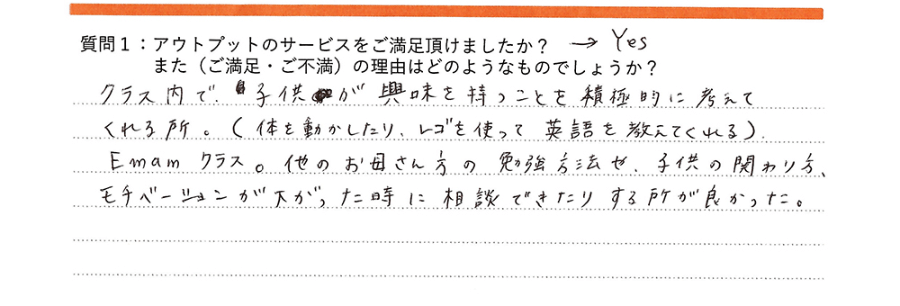 質問1：アウトプットのサービスをご満足頂けましたか？ → Yes
また（ご満足・ご不満）の理由はどのようなものでしょうか？
クラス内で、子供が興味を持つことを積極的に考えて
くれる所。（体を動かしたり、レゴを使って英語を教えてくれる）.
Emamクラス。他のお母さん方の勉強方法や、子供の関わり方、
モチベーションが下がった時に相談できたりする所が良かった。